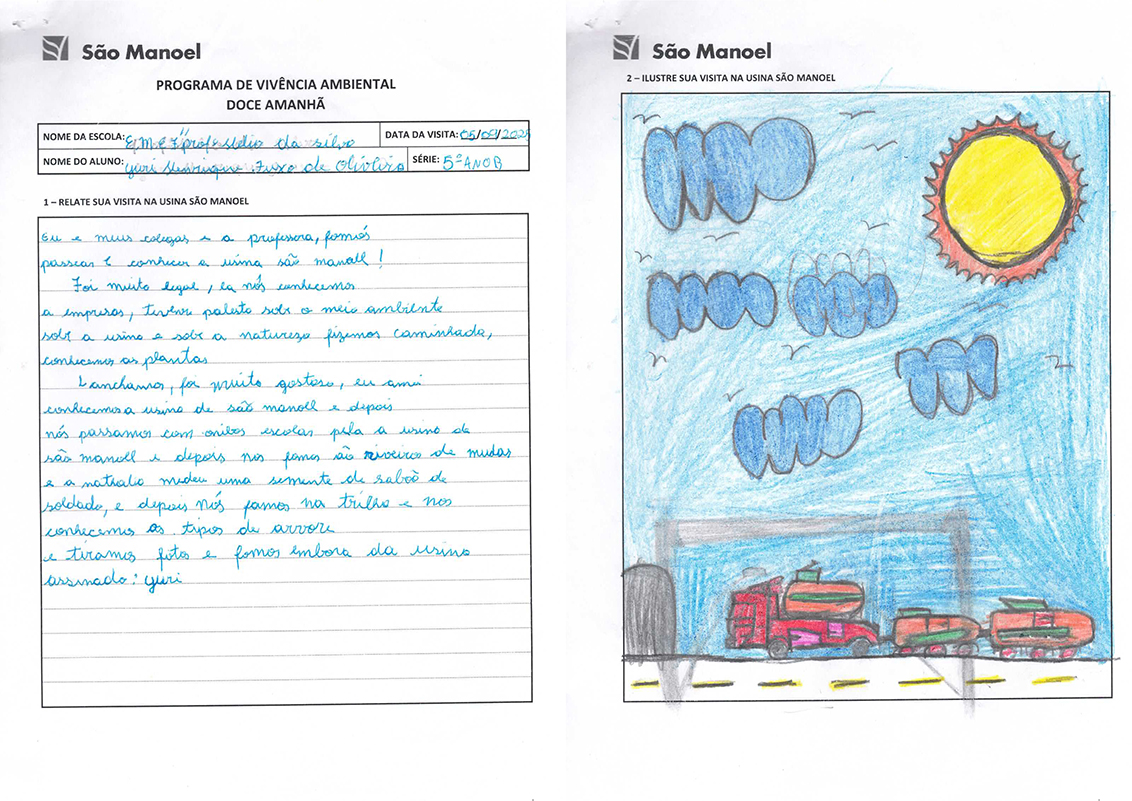 São Manoel
PROGRAMA DE VIVÊNCIA AMBIENTAL
DOCE AMANHÃ
NOME DA ESCOLA: E.M.E.F "prof da silva
DATA DA VISITA: 05/09/2025
NOME DO ALUNO: Yuri Henrique de Oliveira
SÉRIE: 5º ANO B
1 – RELATE SUA VISITA NA USINA SÃO MANOEL
Eu e meus colegas e a professora, fomos
passear e conhecer a usina são manoell !
Foi muito legal, la nós conhecemos
a empresas, tevemi palesto sobr o meio ambiente
sobr a usina e sobr a natureza fizemos caminhada,
conhecemos as plantas
Lanchamos, foi muito gostoso, eu amei
conhecemos a usina de são manoll e depois
nós passamos com onibos escolas pela a usina de
são manoll e depois nos fomos ão viveiro de mudas
e a nathalia medeu uma semente de sabão de
soldado, e depois nós fomos na trilha e nos
conhecemos os tipos de arvore
e tiramos foto e fomos embora da usina
assinado: yuri
São Manoel
2 – ILUSTRE SUA VISITA NA USINA SÃO MANOEL